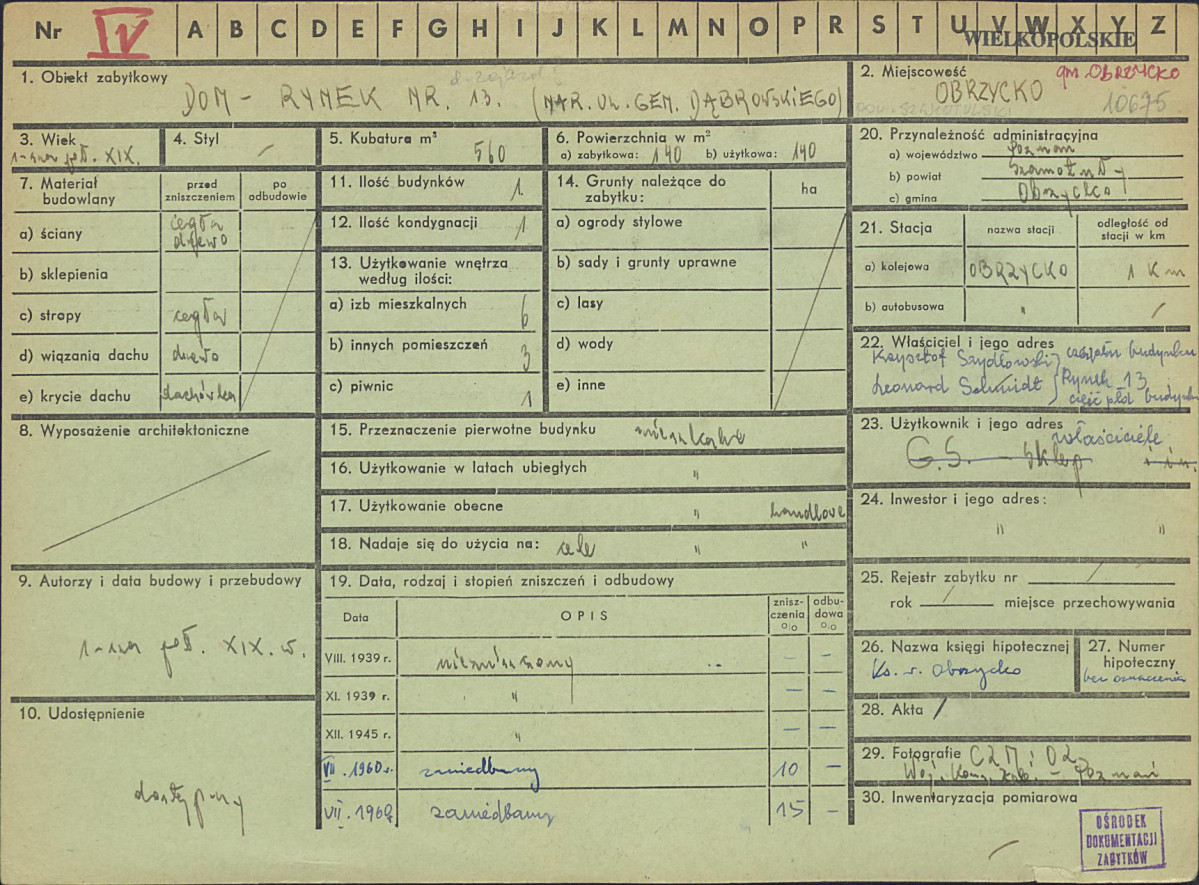 Nr IV A B C D E F G H I J K L M N O P R S T U V W X Y Z
WIELKOPOLSKIE
1. Obiekt zabytkowy
DOM - RYNEK NR. 13. (NAR. UL. GEN. DĄBROWSKIEGO)
2. Miejscowość gm. OBRZYCKO
OBRZYCKO 10675
POW. SZAMOTULSKI
3. Wiek
1-sza poł. XIX.
4. Styl /
5. Kubatura m³
560
6. Powierzchnia w m²
a) zabytkowa: 140 b) użytkowa: 140
20. Przynależność administracyjna
a) województwo Poznań
b) powiat Szamotuły
c) gmina Obrzycko
7. Materiał budowlany
przed zniszczeniem
po odbudowie
a) ściany cegła drzewo
b) sklepienia
c) stropy cegła
d) wiązania dachu drzewo
e) krycie dachu dachówka
11. Ilość budynków 1
12. Ilość kondygnacji 1
13. Użytkowanie wnętrza
według ilości:
a) izb mieszkalnych 6
b) innych pomieszczeń 3
c) piwnic 1
14. Grunty należące do
zabytku:
ha
a) ogrody stylowe
b) sady i grunty uprawne
c) lasy
d) wody
e) inne
21. Stacja
nazwa stacji
odległość od
stacji w km
a) kolejowa OBRZYCKO 1 Km
b) autobusowa " /
22. Właściciel i jego adres
Krzysztof Szydłowski } część płn budynku
Leonard Schmidt } Rynek 13
część płd budynku
8. Wyposażenie architektoniczne
15. Przeznaczenie pierwotne budynku mieszkalne
16. Użytkowanie w latach ubiegłych "
17. Użytkowanie obecne " handlowe
18. Nadaje się do użycia na: cele " "
23. Użytkownik i jego adres
właściciele
G.S. — Sklep i in.
24. Inwestor i jego adres:
" "
9. Autorzy i data budowy i przebudowy
1-sza poł. XIX. w.
19. Data, rodzaj i stopień zniszczeń i odbudowy
Data
OPIS
znisz-
czenia
%
odbu-
dowa
%
VIII. 1939 r. niezniszczony - -
XI. 1939 r. " - -
XII. 1945 r. " - -
VII. 1960 r. zaniedbany 10 -
VII. 1962 zaniedbany 15 -
25. Rejestr zabytku nr /
rok / miejsce przechowywania
26. Nazwa księgi hipotecznej
Ks. w. Obrzycko
27. Numer
hipoteczny
bez oznaczenia
10. Udostępnienie
dostępny
28. Akta /
29. Fotografie CZM i OZ
Woj. Kons. Zab. - Poznań
30. Inwentaryzacja pomiarowa
/
OŚRODEK
DOKUMENTACJI
ZABYTKÓW